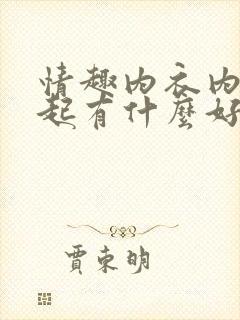 情趣内衣内
起有什麼好
賈東明